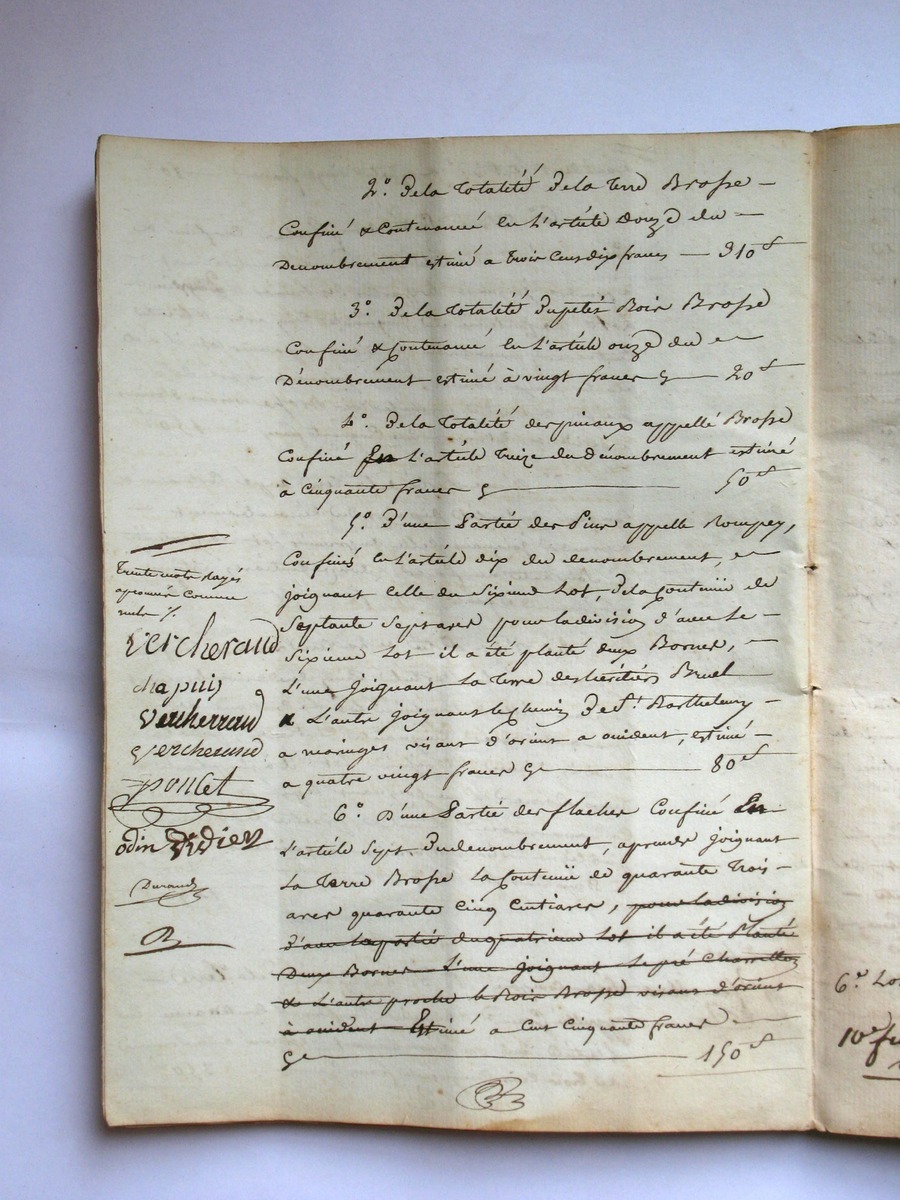 2.° De la totalité De la terre Brosse —
Confiné & Contenancé en L'article Douze du —
Denombrement estimé a trois Cens dix francs — 310 f
3.° De la totalité Du petit Bois Brosse
Confiné & Contenancé en L'article onze du
Dénombrement estimé à vingt francs — 20 f
4.° De la totalité des pineaux appellé Brosse
Confiné En L'article treize du dénombrement estimé
à Cinquante francs — 50 f
5.° D'une Partie des Pins appellé Rompey,
Confinés en L'article dix du denombrement, et
joignant Celle du Sixieme Lot, De la Contenue de
Septante Sept ares pour la division d'avec Le —
Sixieme Lot il a été planté deux Bornes, —
L'une joignant La terre des héritiers Bruel
& L'autre joignant le chemin De St. Barthelemy —
a maringes visant d'orient a occident, estimé —
a quatre vingt francs — 80 f
6.° D'une Partie des flaches Confiné En
L'article Sept Du denombrement, a prendre joignant
La Terre Brosse La Contenue de quarante trois —
ares quarante Cinq Centiares, pour la division
d'avec la partie du quatrieme Lot il a été Planté
Deux Bornes L'une joignant Le pré Charretton
& L'autre proche le Bois Brosse visant d'orient
à occident Estimé a Cent Cinquante francs —
— 150 f
Trente mots rayés
approuvés Comme
nuls /.
Vercherand
chapuis
Vercherand
Vercherand
poncet
odin
Durand
6.e Lo
10e fu